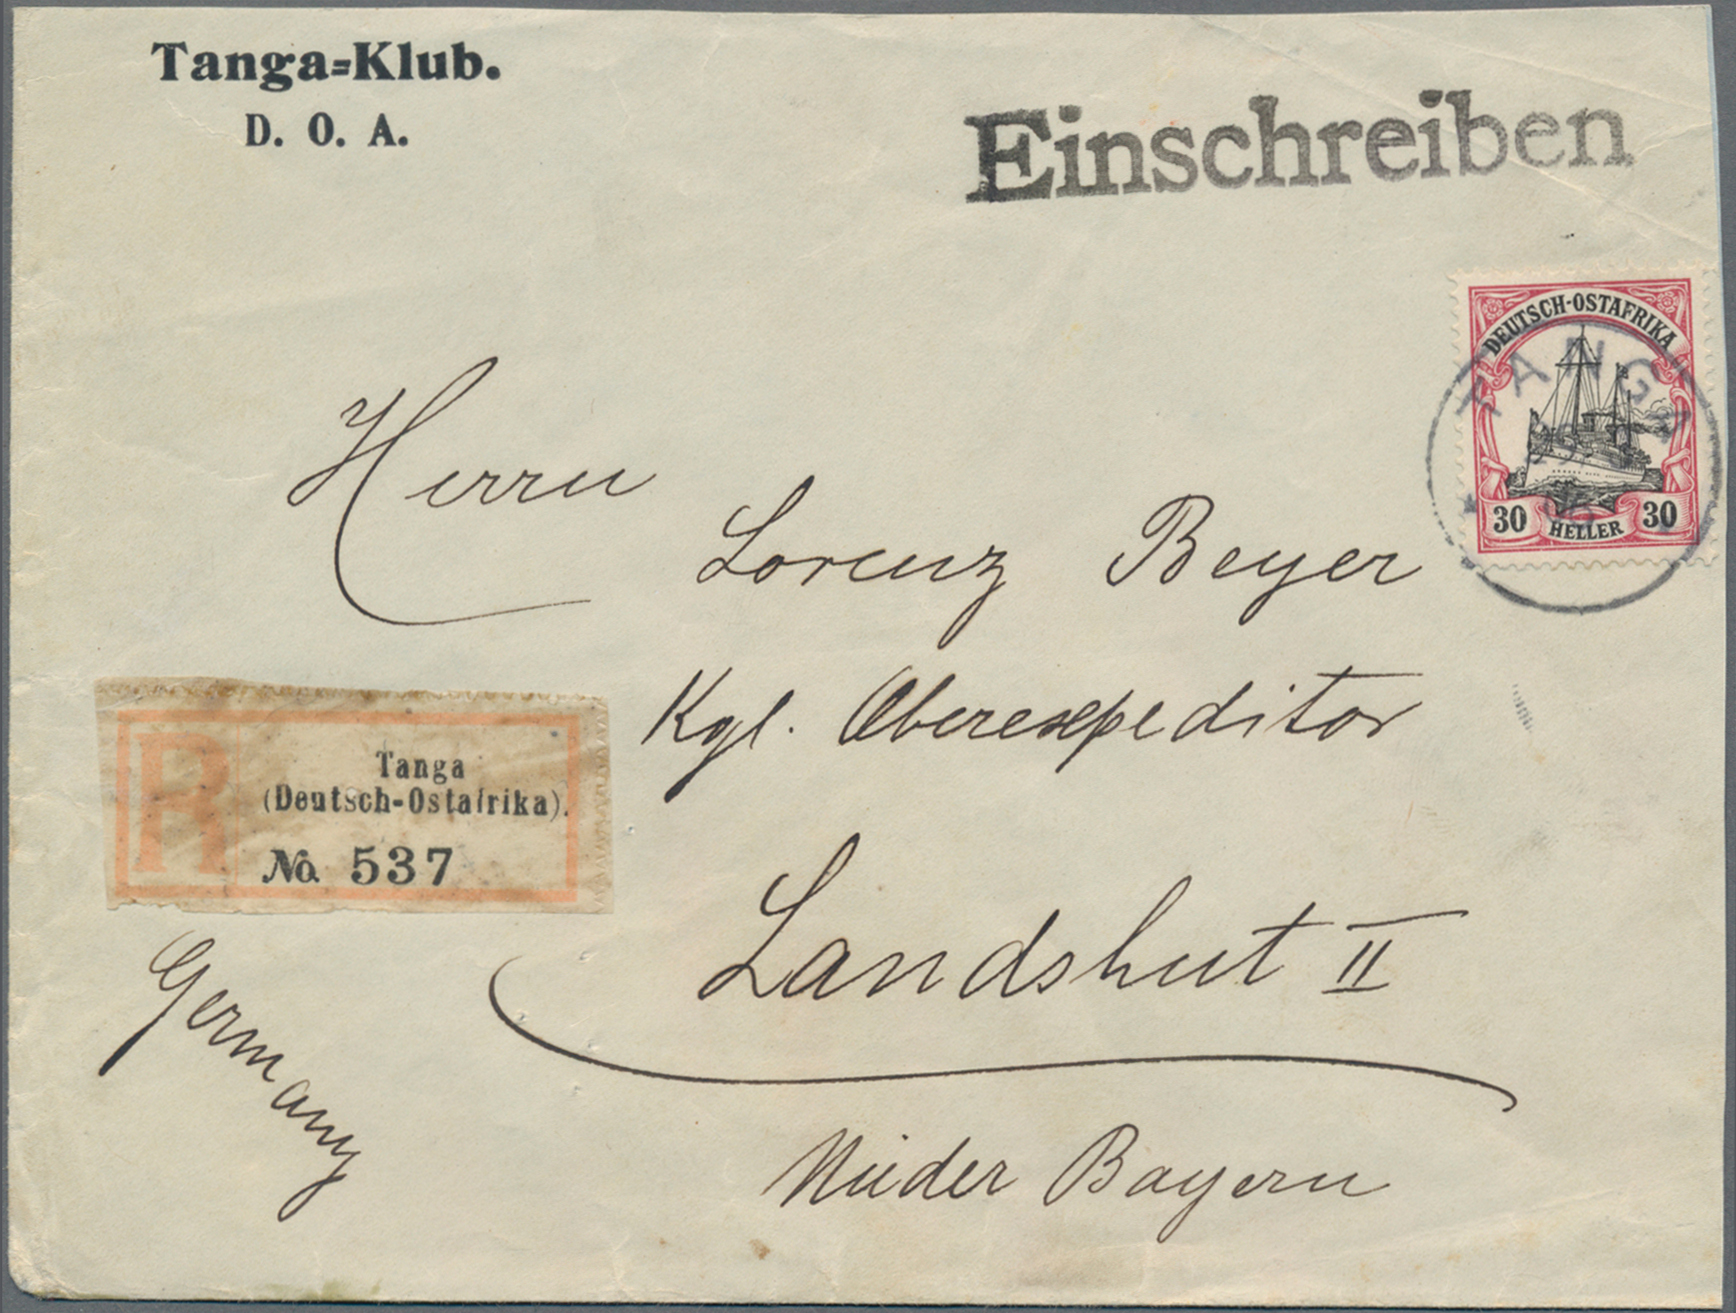 Tanga=Klub.
D. O. A.
Einschreiben
DEUTSCH-OSTAFRIKA
TANGA
30 HELLER 30
Herrn
Lorenz Beyer
Kgl. Oberexpeditor
Tanga
(Deutsch-Ostafrika).
R
No. 537
Landshut II
Germany
Nieder Bayern